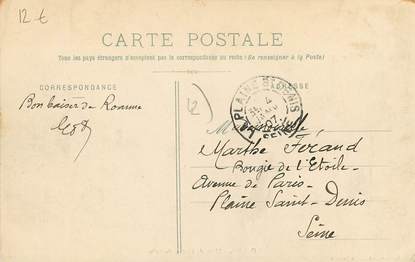 12 €
CARTE POSTALE
Tous les pays étrangers n'acceptent pas la correspondance au recto (Se renseigner à la Poste)
CORRESPONDANCE
ADRESSE
Bon baiser de Roanne
PLAINE ST DENIS
SEINE
12
Mademoiselle
Marthe Férand
Bougie de l'Etoile
Avenue de Paris
Plaine Saint-Denis
Seine